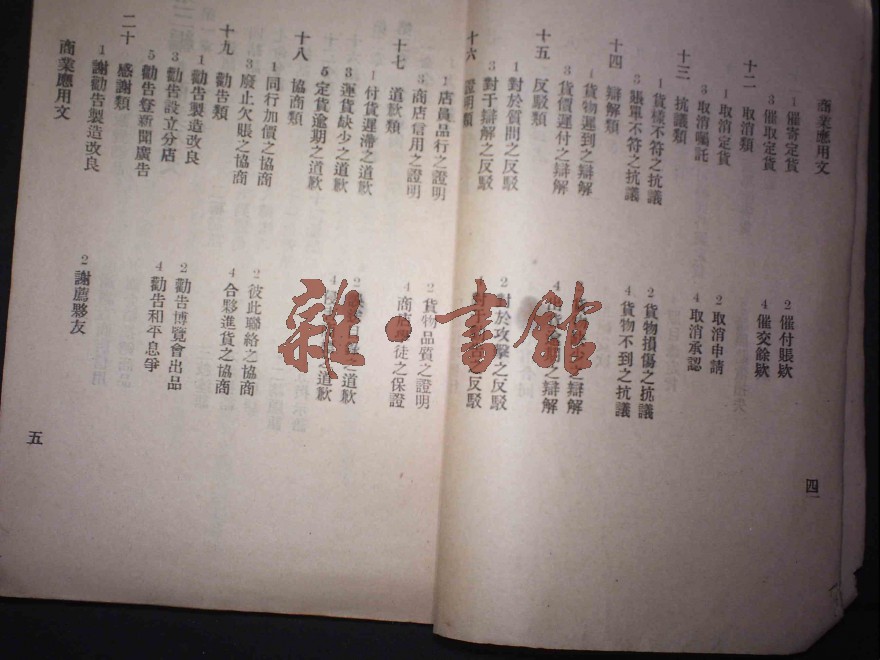 商業應用文
1 催寄定貨 2 催付賬欵
3 催取定貨 4 催交餘欵
十二 取消類
1 取消定貨 2 取消申請
3 取消囑託 4 取消承認
十三 抗議類
1 貨樣不符之抗議 2 貨物損傷之抗議
3 賬單不符之抗議 4 貨物不到之抗議
十四 辯解類
1 貨物遲到之辯解 之辯解
3 貨價遲付之辯解 4 之辯解
十五 反駁類
1 對於質問之反駁 2 對於攻擊之反駁
3 對于辯解之反駁 對于 之反駁
十六 證明類
四
1 店員品行之證明 2 貨物品質之證明
3 商店信用之證明 4 商店學徒之保證
十七 道歉類
1 付貨遲滯之道歉 2 之道歉
3 運貨缺少之道歉 4 之道歉
5 定貨逾期之道歉
十八 協商類
1 同行加價之協商 2 彼此聯絡之協商
3 廢止欠賬之協商 4 合夥進貨之協商
十九 勸告類
1 勸告製造改良 2 勸告博覽會出品
3 勸告設立分店 4 勸告和平息爭
5 勸告登新聞廣告
二十 感謝類
1 謝勸告製造改良 2 謝薦夥友
商業應用文
五
雜·書館